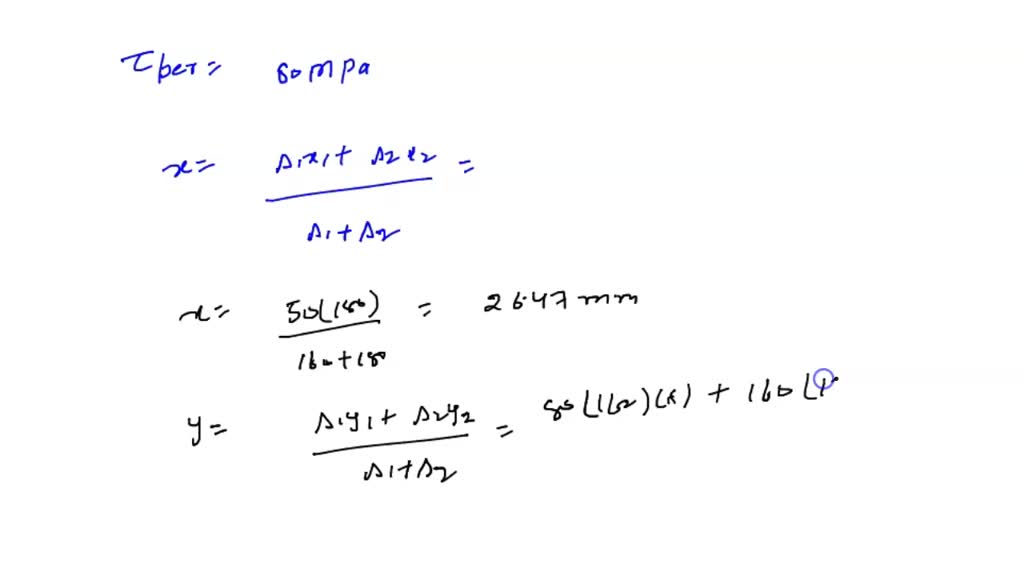 τper = 80mpa
x = A1x1 + A2x2 / A1 + A2 =
x = 50(180) / 160+180 = 26.47mm
y = A1y1 + A2y2 / A1 + A2 = 80(160)(8) + 160(1